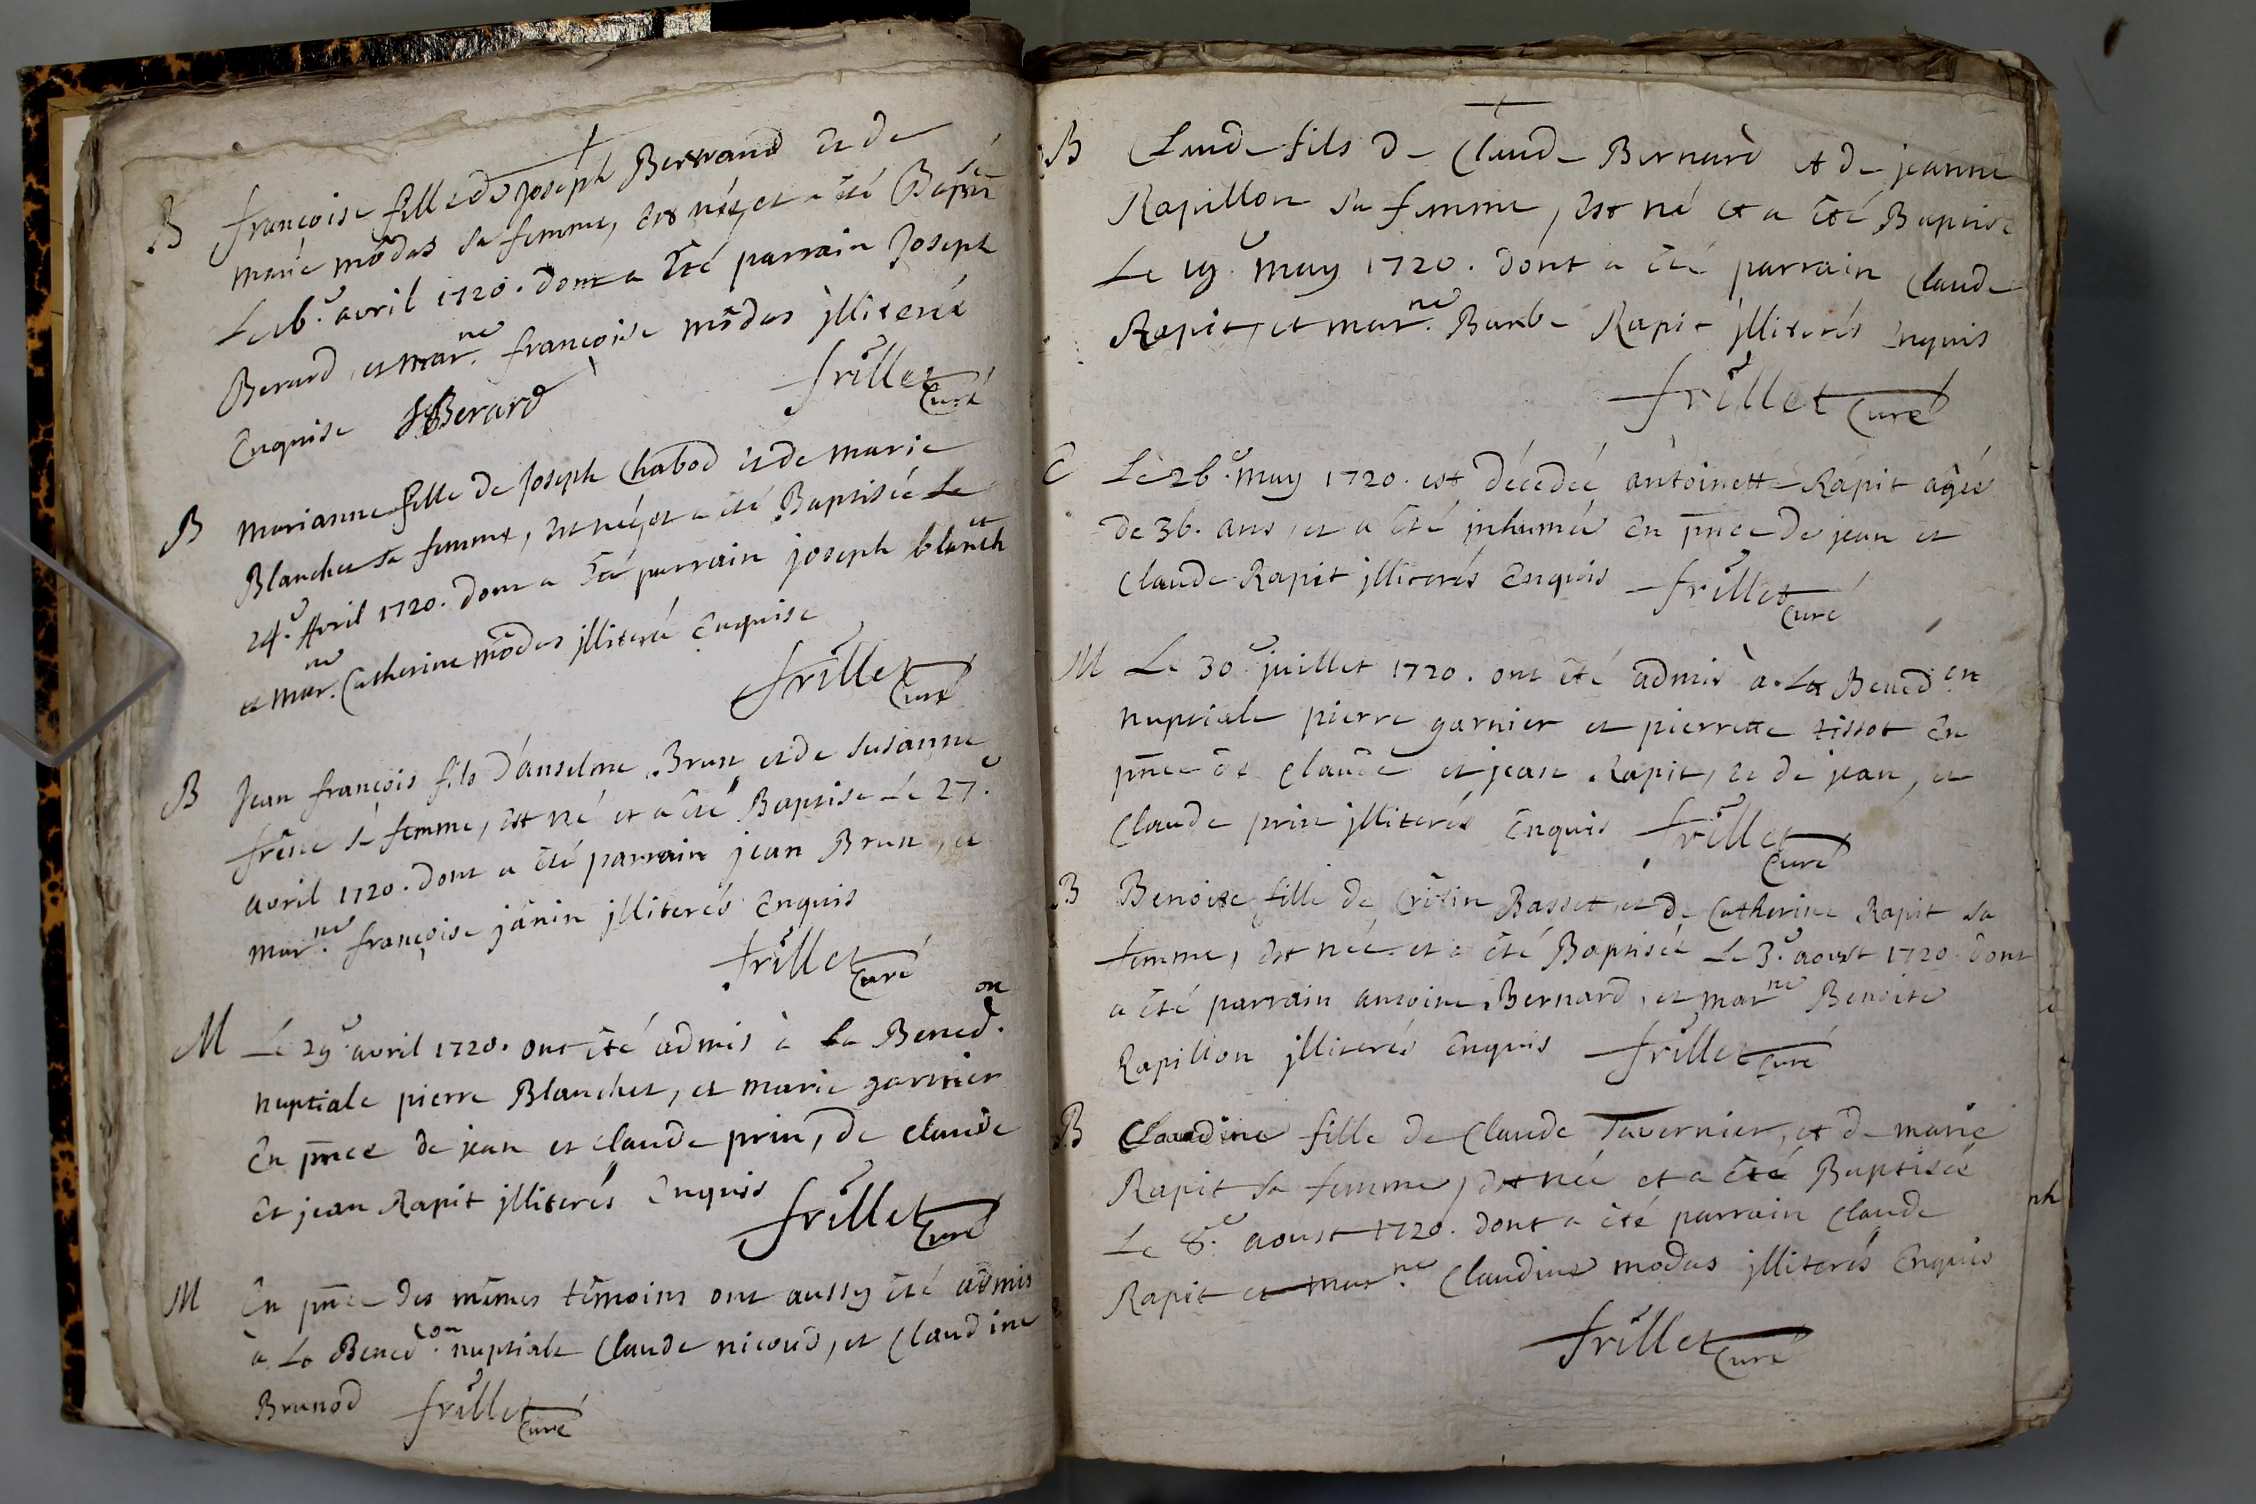 B françoise fille de Joseph Bertrand et de
marie modas sa femme, est néé, et a été Baptisé
Le 16e. avril 1720. dont a été parrain Joseph
Berard, et marne. françoise modas jlliterée
Enquise JBerard frillet Curé
B marianne fille de Joseph Chabod et de marie
Blanchet sa femme, est néé, et a été Baptisée Le
24e. Avril 1720. dont a été parrain joseph blanchet
et marne. Catherine modas jlliterée Enquise
frillet Curé
B Jean françois fils d'anselme Brun et de susanne
frêne sa femme, est né et a été Baptisé Le 27e.
avril 1720. dont a été parrain jean Brun, et
marne. françoise janin jlliterés Enquis
frillet Curé
M Le 29e. avril 1720. ont été admis à La Benedon.
nuptiale pierre Blanchet, et marie garnier
En pnce de jean et claude prin, de claude
et jean Rapit jlliterés Enquis
frillet Curé
M En pnce des mêmes témoins ont aussy été admis
à La Benedon. nuptiale Claude nicoud, et Claudine
Brunod frillet Curé
B Claude fils de Claude Bernard et de jeanne
Rapillon sa femme, est né et a été Baptisé
Le 19e. may 1720. dont a été parrain Claude
Rapit, et marne. Barbe Rapit jlliterés Enquis
frillet Curé
E Le 26e. may 1720. est décedéé antoinette Rapit agée
de 36. ans, et a été jnhumée En pnce de jean et
Claude Rapit jlliterés Enquis frillet Curé
M Le 30e. juillet 1720. ont été admis à La Beneden
nuptiale pierre garnier et pierrette tissot En
pnce de Claude et jean Rapit, et de jean, et
Claude prin jlliterés Enquis frillet Curé
B Benoite fille de Basset, et de Catherine Rapit sa
femme, est néé et a été Baptisée Le 3e. aoust 1720. dont
a été parrain antoine Bernard, et marne Benoite
Rapillon jlliterés Enquis frillet Curé
B Claudine fille de Claude Tavernier, et de marie
Rapit sa femme, est néé et a été Baptisée
Le 8e. aoust 1720. dont a été parrain Claude
Rapit et marne. Claudine modas jlliterés Enquis
frillet Curé